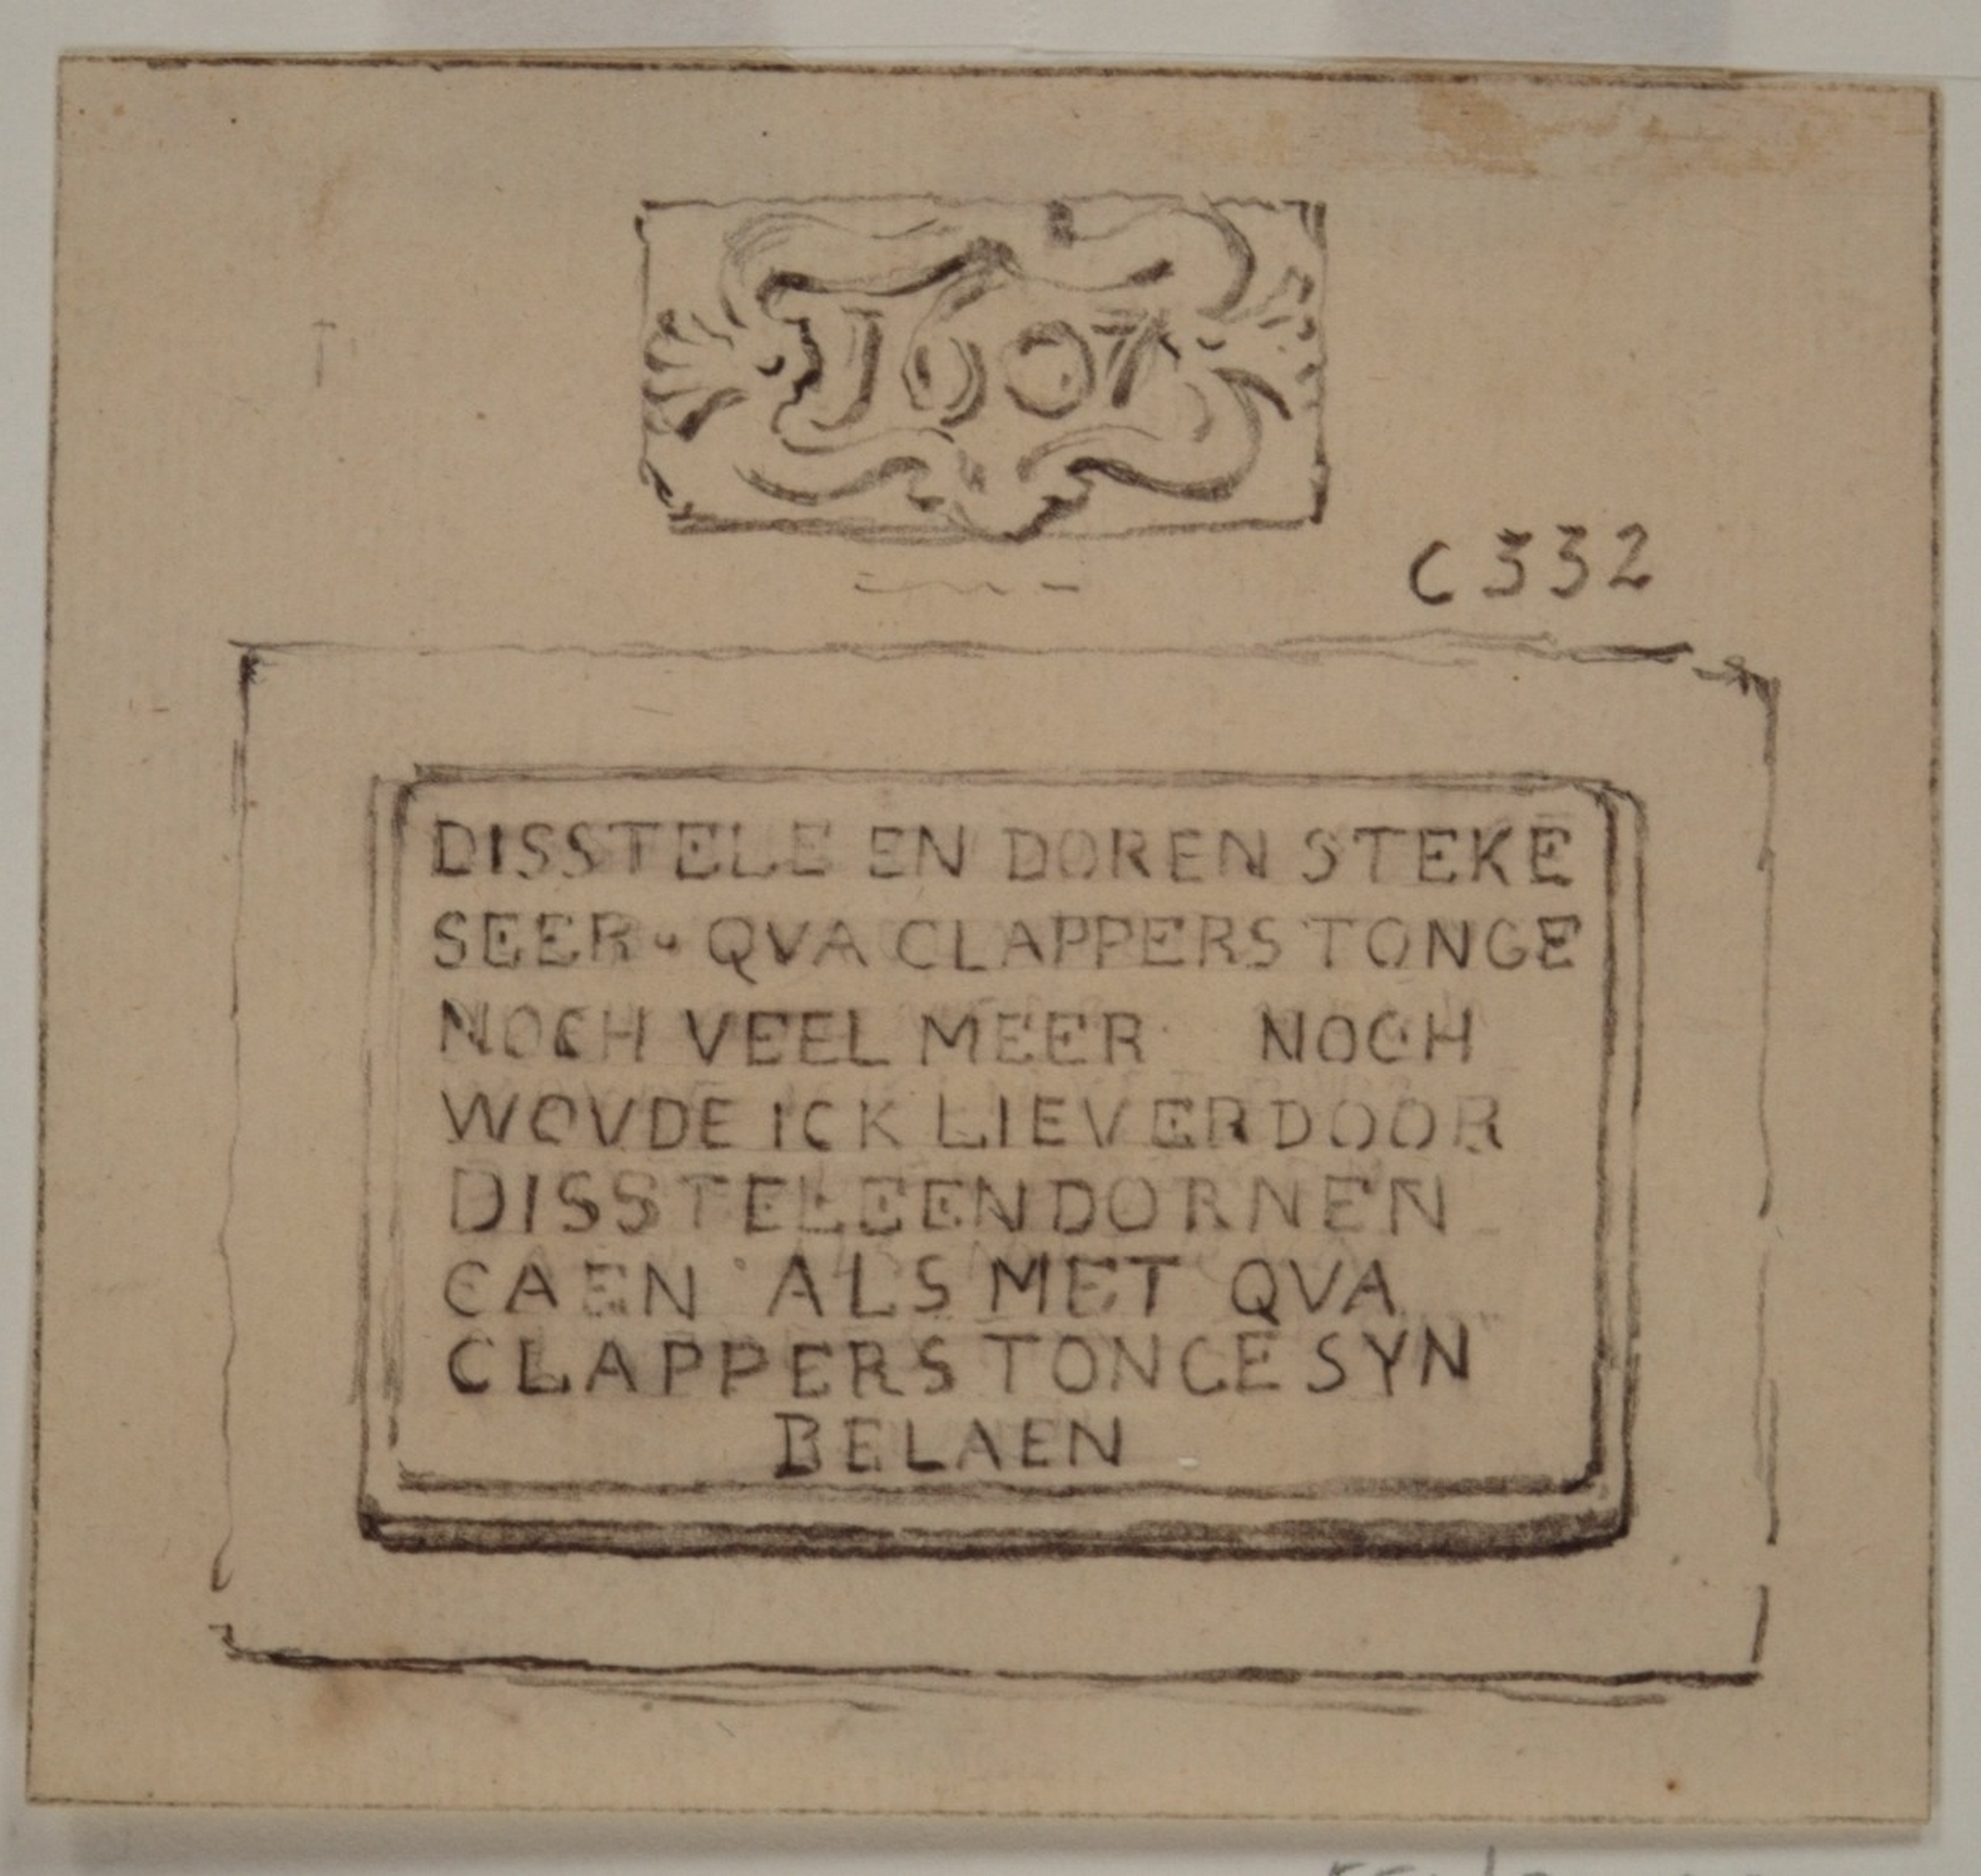 1607
C332
DISSTELE EN DOREN STEKE
SEER · QVA CLAPPERS TONGE
NOCH VEEL MEER NOCH
WOVDE ICK LIEVER DOOR
DISSTELEENDORNEN
CAEN · ALS MET QVA
CLAPPERS TONCE SYN
BELAEN